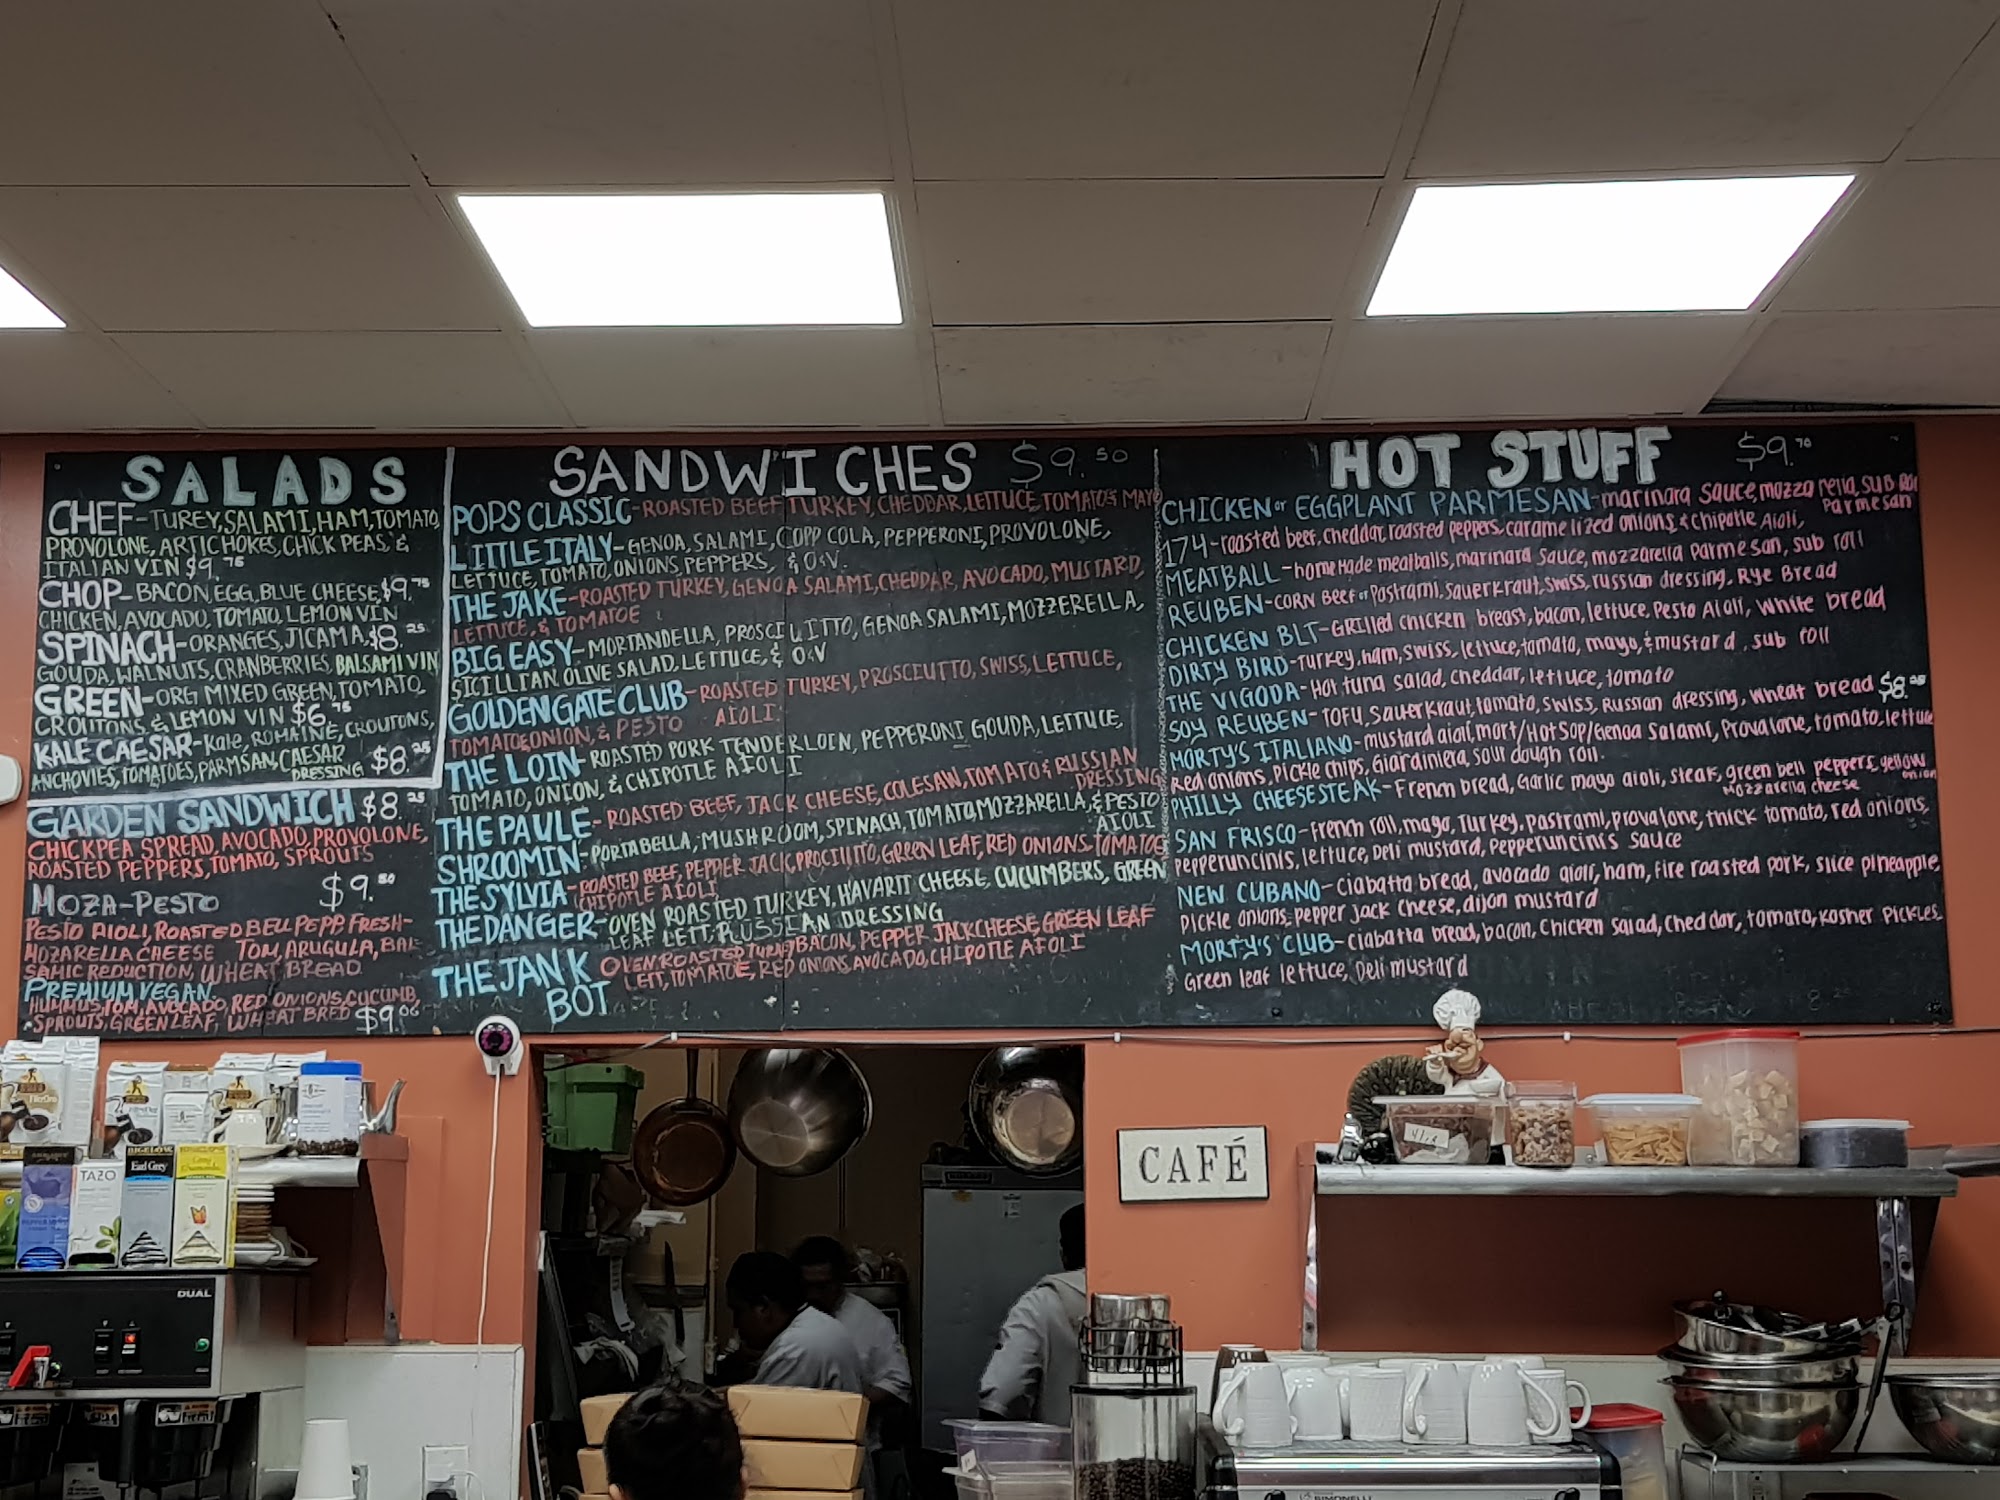 SALADS
CHEF-TUREY,SALAMI,HAM,TOMATO,
PROVOLONE, ARTICHOKES, CHICK PEAS, &
ITALIAN VIN $9.75
CHOP-BACON, EGG, BLUE CHEESE, $9.75
CHICKEN, AVOCADO, TOMATO, LEMON VIN
SPINACH-ORANGES, JICAMA, $8.25
GOUDA, WALNUTS, CRANBERRIES, BALSAMI VIN
GREEN-ORG MIXED GREEN, TOMATO,
CROUTONS, & LEMON VIN $6.75
KALE CAESAR-Kale, ROMAINE, CROUTONS,
ANCHOVIES, TOMATOES, PARMSAN, CAESAR
DRESSING $8.25
GARDEN SANDWICH $8.25
CHICKPEA SPREAD, AVOCADO, PROVOLONE,
ROASTED PEPPERS, TOMATO, SPROUTS
MOZA-PESTO $9.50
PESTO AIOLI, ROASTED BELL PEPP, FRESH-
MOZARELLA CHEESE TOM, ARUGULA, BAL-
SAMIC REDUCTION, WHEAT BREAD
PREMIUM VEGAN
HUMMUS, TOM, AVOCADO, RED ONIONS, CUCUMB,
SPROUTS, GREEN LEAF, WHEAT BRED $9.06
SANDWICHES $9.50
POPS CLASSIC-ROASTED BEEF TURKEY, CHEDDAR, LETTUCE, TOMATO & MAYO
LITTLE ITALY-GENOA, SALAMI, COPP COLA, PEPPERONI, PROVOLONE,
LETTUCE, TOMATO, ONIONS, PEPPERS, & O&V.
THE JAKE-ROASTED TURKEY, GENOA SALAMI, CHEDDAR, AVOCADO, MUSTARD,
LETTUCE, & TOMATOE
BIG EASY-MORTANDELLA, PROSCIUITTO, GENOA SALAMI, MOZZERELLA,
SICILLIAN OLIVE SALAD, LETTUCE, & O&V
GOLDEN GATE CLUB-ROASTED TURKEY, PROSCIUTTO, SWISS, LETTUCE,
TOMATO & ONION, & PESTO AIOLI.
THE LOIN-ROASTED PORK TENDERLOIN, PEPPERONI GOUDA, LETTUCE,
TOMATO, ONION, & CHIPOTLE AIOLI
THE PAULE-ROASTED BEEF, JACK CHEESE, COLESAW, TOMATO & RUSSIAN
DRESSING
SHROOMIN-PORTABELLA, MUSHROOM, SPINACH, TOMATO, MOZZARELLA, & PESTO
AIOLI
THE SYLVIA-ROASTED BEEF, PEPPER JACK, PROCIUTTO, GREEN LEAF, RED ONIONS, TOMATOE
CHIPOTLE AIOLI
THE DANGER-OVEN ROASTED TURKEY, HAVARTI CHEESE, CUCUMBERS, GREEN
LEAF LETT, RUSSIAN DRESSING
THE JANK BOT OVEN ROASTED TURKEY BACON, PEPPER JACK CHEESE, GREEN LEAF
LETT, TOMATOE, RED ONIONS, AVOCADO, CHIPOTLE AIOLI
HOT STUFF $9.70
CHICKEN or EGGPLANT PARMESAN-marinara sauce, mozzarella, sub roll
Parmesan
174-roasted beef, cheddar, roasted peppers, caramelized onions, & chipotle Aioli,
MEATBALL-homeMade meatballs, marinara sauce, mozzarella Parmesan, sub roll
REUBEN-CORN BEEF or Pastrami, Sauerkraut, Swiss, russian dressing, Rye Bread
CHICKEN BLT-GRilled chicken breast, bacon, lettuce, Pesto Aioli, White bread
DIRTY BIRD-Turkey, ham, swiss, lettuce, tomato, mayo, & mustard, sub roll
THE VIGODA-Hot tuna salad, cheddar, lettuce, tomato
SOY REUBEN-TOFU, Sauerkraut, tomato, Swiss, Russian dressing, wheat bread $8.25
MORTY'S ITALIANO-mustard aioli, mort/HotSop/Genoa Salami, Provalone, tomato, lettuce
Red onions, Pickle chips, Giardiniera, sour dough roll.
PHILLY CHEESESTEAK-French bread, Garlic mayo aioli, steak, green bell peppers, yellow onion
Mozzarella cheese
SAN FRISCO-French roll, mayo, Turkey, pastrami, provalone, thick tomato, red onions,
Pepperuncinis, lettuce, Deli mustard, Pepperuncinis sauce
NEW CUBANO-Ciabatta bread, avocado aioli, ham, Fire roasted pork, slice pineapple,
Pickle onions, pepper jack cheese, dijon mustard
MORTY'S CLUB-ciabatta bread, bacon, Chicken Salad, Cheddar, tomato, Kosher Pickles,
Green leaf lettuce, Deli mustard
CAFÉ
TAZO
BIGELOW
Earl Grey
DUAL
SIMONELLI